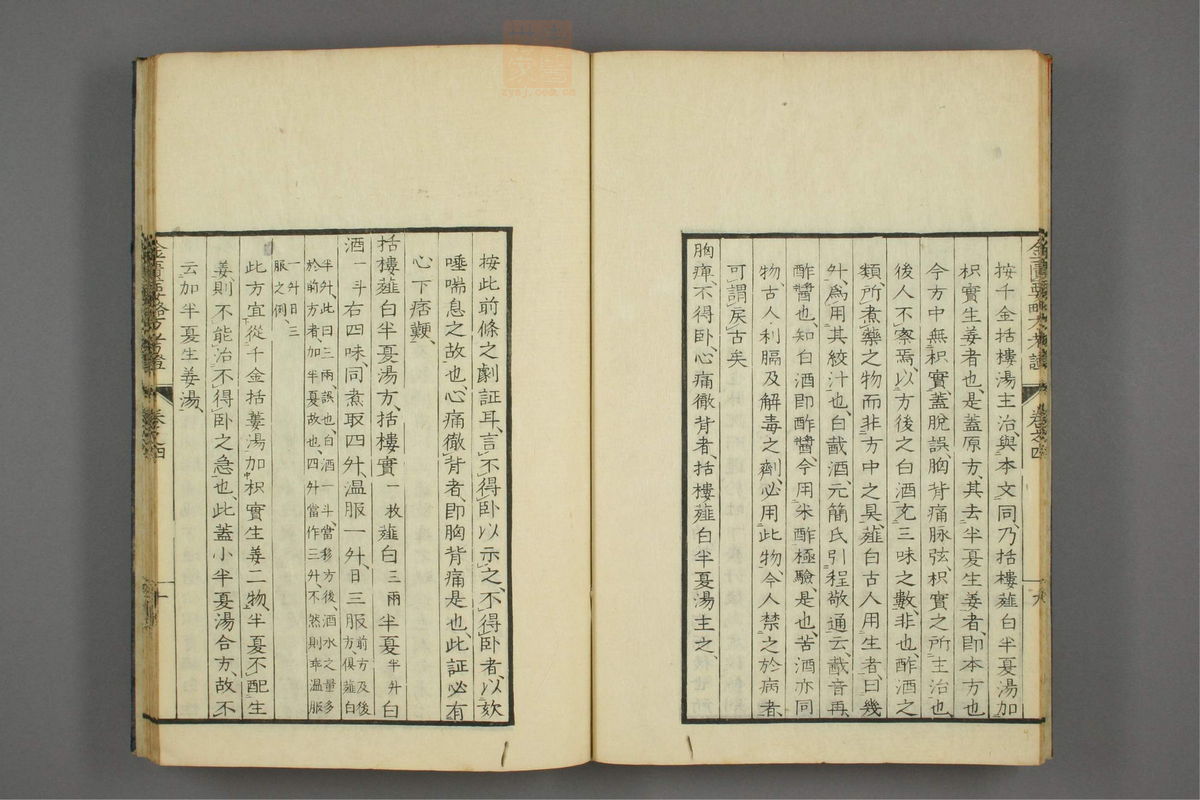 金匱要略方考證 卷之四 十九
按千金栝樓湯主治與本文同、乃栝樓薤白半夏湯加
枳實生姜者也、是蓋原方、其去半夏生姜者、即本方也
今方中無枳實蓋脫誤、胸背痛脉弦、枳實之所主治也
後人不察焉、以方後之白酒充三味之數、非也、酢酒之
類、所煮藥之物而非方中之具、薤白古人用生者、曰幾
升、爲用其絞汁也、白酨酒、元簡氏引程敬通云、酨音再、
酢醬也、知白酒即酢醬、今用米酢極驗、是也、苦酒亦同
物、古人利膈及解毒之劑、必用此物、今人禁之於病者、
可謂戾古矣
胸痺、不得卧、心痛徹背者、栝樓薤白半夏湯主之、
按此前條之劇証耳、言不得卧以示之、不得卧者、以欬
唾喘息之故也、心痛徹背者、即胸背痛是也、此証必有
心下痞鞕、
栝樓薤白半夏湯方、栝樓實一枚薤白三兩半夏半升白
酒一斗右四味、同煮取四升、温服一升、日三服前方及後方、俱薤白
半升、此曰三兩、誤也、白酒一斗、當移方後、酒水之量多
於前方者、加半夏故也、四升當作三升、不然則乖温服
一升日三
服之例、
此方宜從千金栝蔞湯加枳實生姜二物、半夏不配生
姜則不能治不得卧之急也、此蓋小半夏湯合方、故不
云加半夏生姜湯、
金匱要略方考證 卷之四 二十